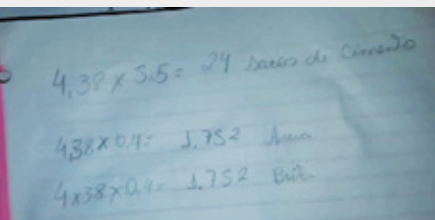 4,38 x 5.5= 24 sacos de Cimento
4,38 x 0,4= 1.752 Areia
4x38 x 0,4= 1.752 Brit